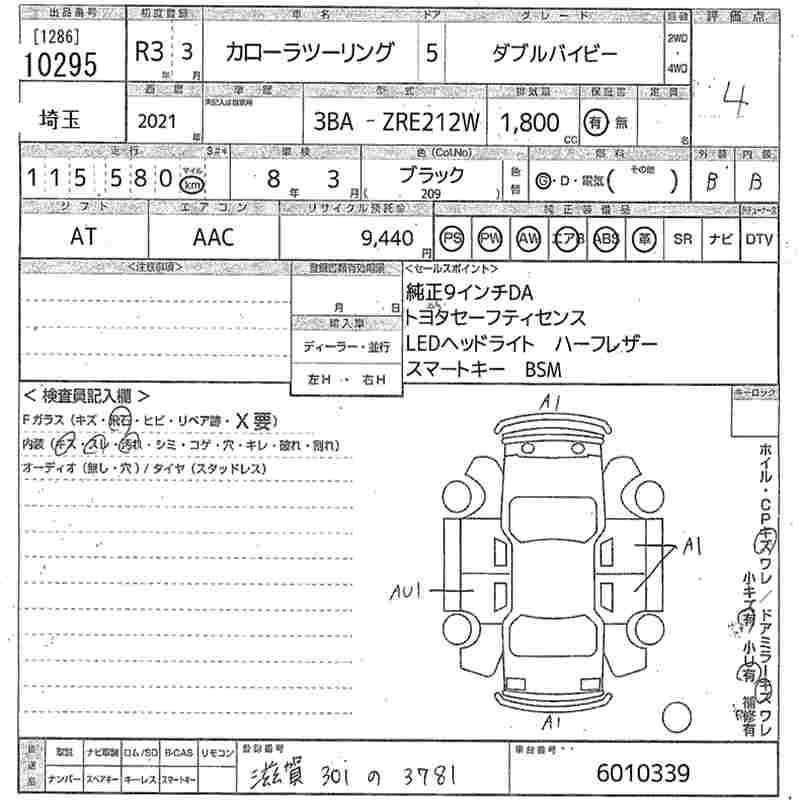 出品番号 初度登録 車名 ドア グレード 駆動 評価点
[1286]
10295 R3年 3月 カローラツーリング 5 ダブルバイビー 2WD・4WD 4
埼玉 西暦 車歴 型式 排気量 保証書 定員
2021年 3BA - ZRE212W 1,800cc 有 無 名
走行 車検 色(Col.No) 燃料 外装 内装
115,580 マイル km 8年 3月 ブラック 色替 G・D・電気( その他 ) B B
( 209 )
シフト エアコン リサイクル預託金 純正装備品
AT AAC 9,440円 PS PW AW エアB ABS 革 SR ナビ DTV
<注意事項> 登録書類有効期限 <セールスポイント>
月 日 純正9インチDA
輸入車 トヨタセーフティセンス
ディーラー・並行 LEDヘッドライト ハーフレザー
左H・右H スマートキー BSM
<検査員記入欄> キーロック
Fガラス(キズ・飛石・ヒビ・リペア跡・X要)
内装(キズ・スレ・汚れ・シミ・コゲ・穴・キレ・破れ・割れ)
オーディオ(無し・穴)/タイヤ(スタッドレス)
A1
A1
AU1
A1
ホイル・CPキズワレ/ドアミラーキズワレ
小キズ有/小U有 補修有
取説 ナビ取説 ロム/SD B-CAS リモコン 登録番号 車台番号
ナンバー スペアキー キーレス スマートキー 滋賀 301 の 3781 6010339